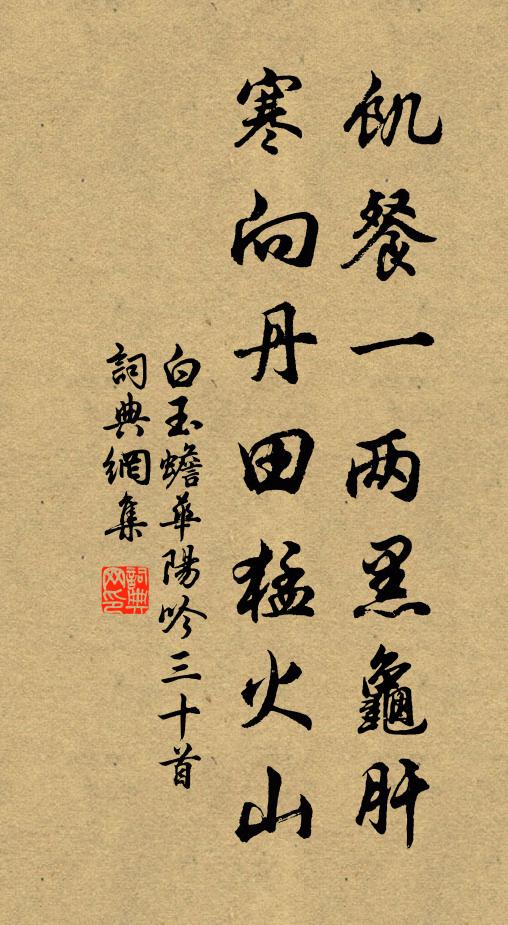 飢餐一两黑龜肝
寒向丹田猛火山
白玉蟾華陽吟三十首
詞典網集
詞典网印